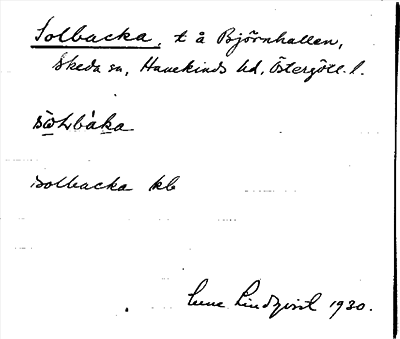 Solbacka, t å Björnhallen,
Skeda sn, Hanekinds hd, Östergötl. l.
sωLbaka
Solbacka kb
Sune Lindqvist 1930.